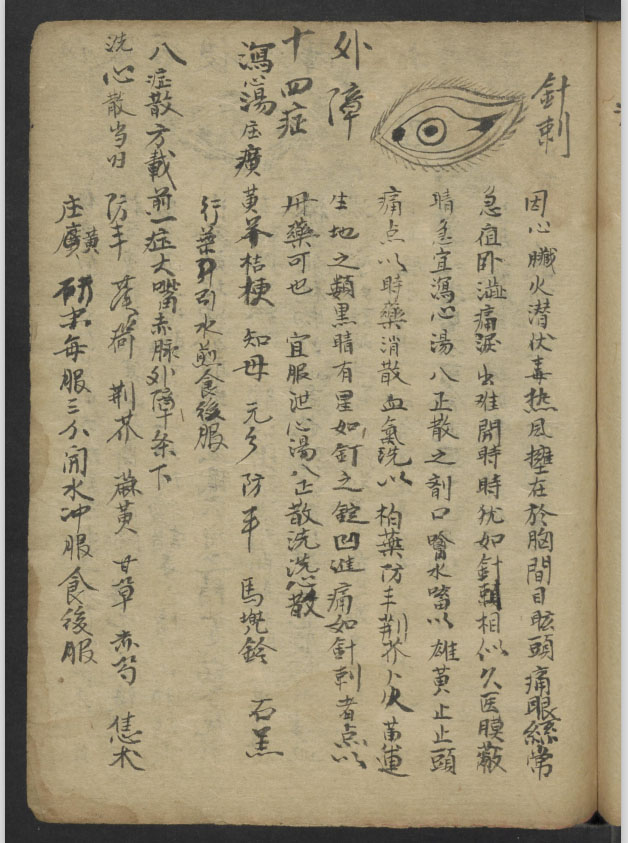 針刺
因心臟火潜伏毒热風擁在於胸間目眩頭痛眼絲常
急疽卧澁痛淚出难開時時犹如針刺相似久医膜蔽
睛急宜瀉心湯八正散之剤口噙水㗜以雄黄止止頭
痛点以時藥消散血氣洗以柏藥防丰荆芥皮黄連
外障
生地之類黒睛有星如釘之錠凹进痛如針刺者点以
十四症
用藥可也 宜服泄心湯八正散洗洗心散
瀉心湯 庄癀 黄芩 桔梗 知母 元参 防丰 馬兠鈴 石羔
行藥 引水煎食後服
八症散方載前一症大嘴赤脉外障条下
洗心散 当归 防丰 荆芥 蔴黄 甘草 赤芍 白术
庄癀 研末每服三个開水冲服食後服